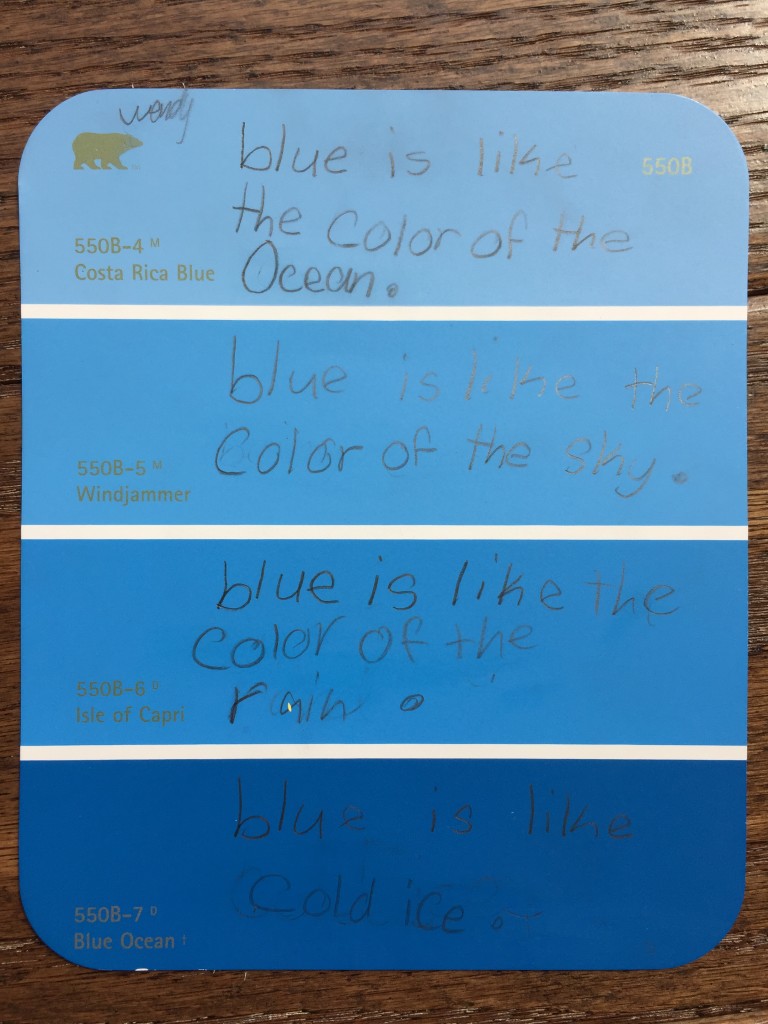 wendy
blue is like
550B
the color of the
550B-4 M
Costa Rica Blue
Ocean.
blue is like the
Color of the sky.
550B-5 M
Windjammer
blue is like the
Color of the
550B-6 D
Isle of Capri
rain.
blue is like
Cold ice
550B-7 D
Blue Ocean †